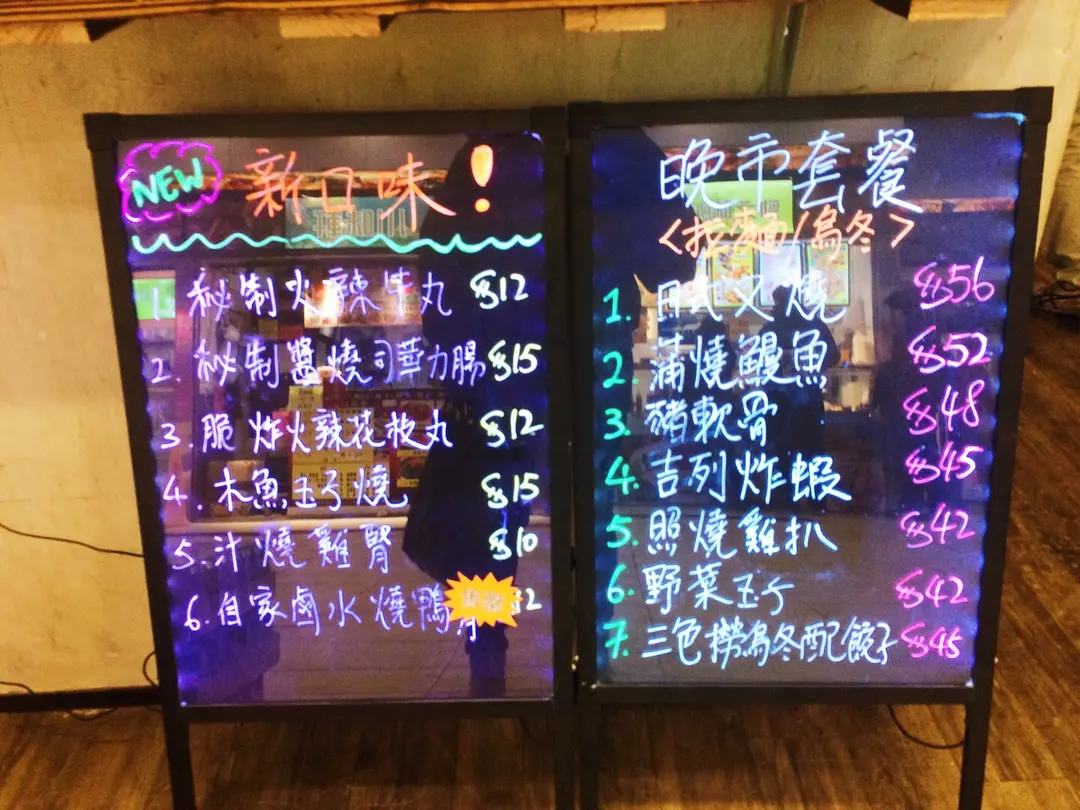 NEW 新口味!
1. 秘制火辣牛丸 $12
2. 秘制醬燒司華力腸 $15
3. 脆炸火辣花枝丸 $12
4. 木魚玉子燒 $15
5. 汁燒雞腎 $10
6. 自家鹵水燒鴨
晚市套餐
<拉麵/烏冬>
1. 日式叉燒 $56
2. 蒲燒鰻魚 $52
3. 豬軟骨 $48
4. 吉列炸蝦 $45
5. 照燒雞扒 $42
6. 野菜玉子 $42
7. 三色撈烏冬配餃子 $45